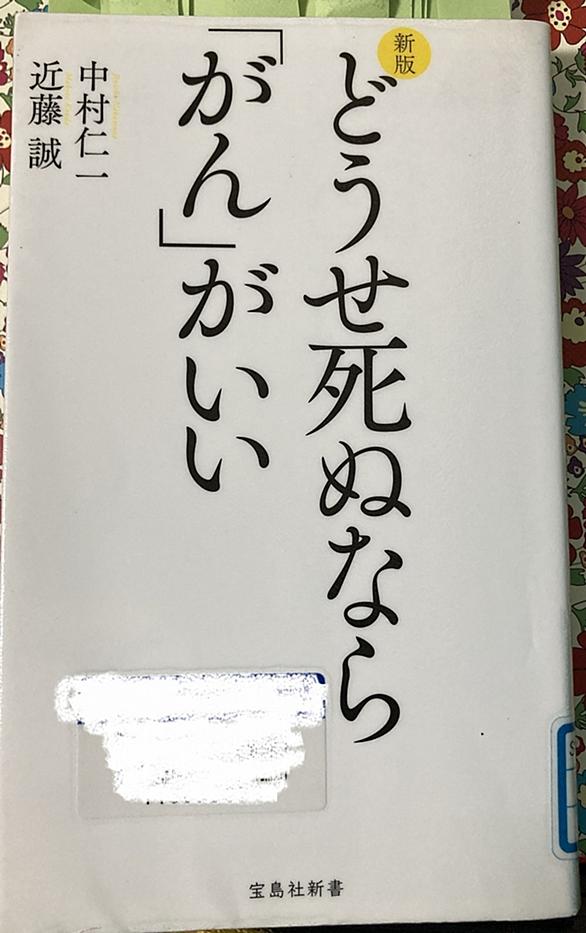 新版
どうせ死ぬなら
「がん」がいい
中村仁一
近藤 誠
宝島社新書